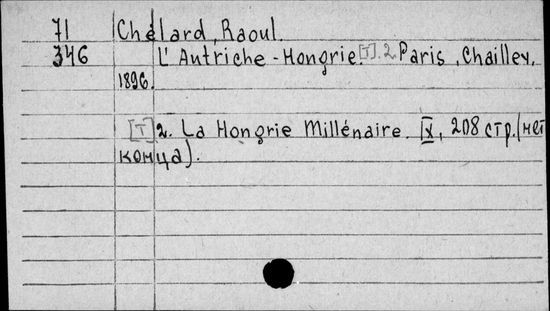 71 Chélard, Raoul.
346 L'Autriche-Hongrie [T]. 2. Paris, Chailley,
1896.
[T] 2. La Hongrie Millénaire. X, 208 стр. (нет
конца).